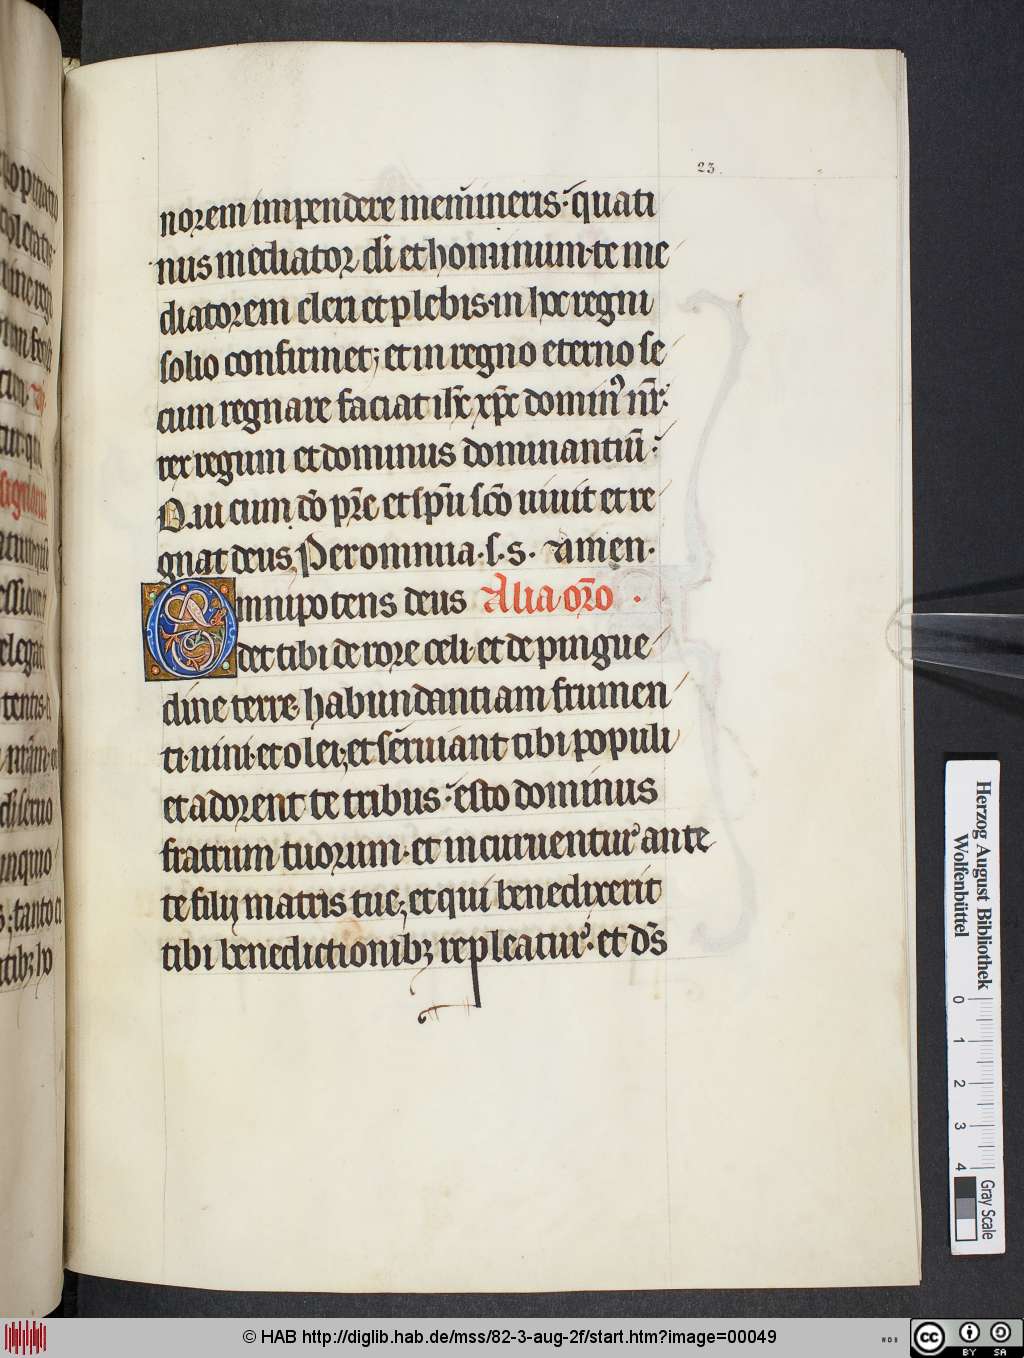 23.
norem impendere mem̅ineris. quati
nus mediator di̅ et hominum. te me
diatorem cleri et plebis. in hoc regni
solio confirmet; et in regno eterno se
cum regnare faciat ih̅c xp̅c dominꝰ nr̅.
rex regum et dominus dominantiu̅.
Qui cum do̅ pr̅e et sp̅u sc̅o uiuit et re
gnat deus. Per omnia. s. s. amen.
Omnipotens deus Alia or̅o.
det tibi de rore celi. et de pingue
dine terre. habundantiam frumen
ti. uini. et olei; et seruiant tibi populi
et adorent te tribus. esto dominus
fratrum tuorum. et incuruentur ante
te filij matris tue; et qui benedixerit
tibi benedictionibꝫ repleatur. et ds̅
Herzog August Bibliothek
Wolfenbüttel
0 1 2 3 4
Gray Scale
© HAB http://diglib.hab.de/mss/82-3-aug-2f/start.htm?image=00049
cc BY SA